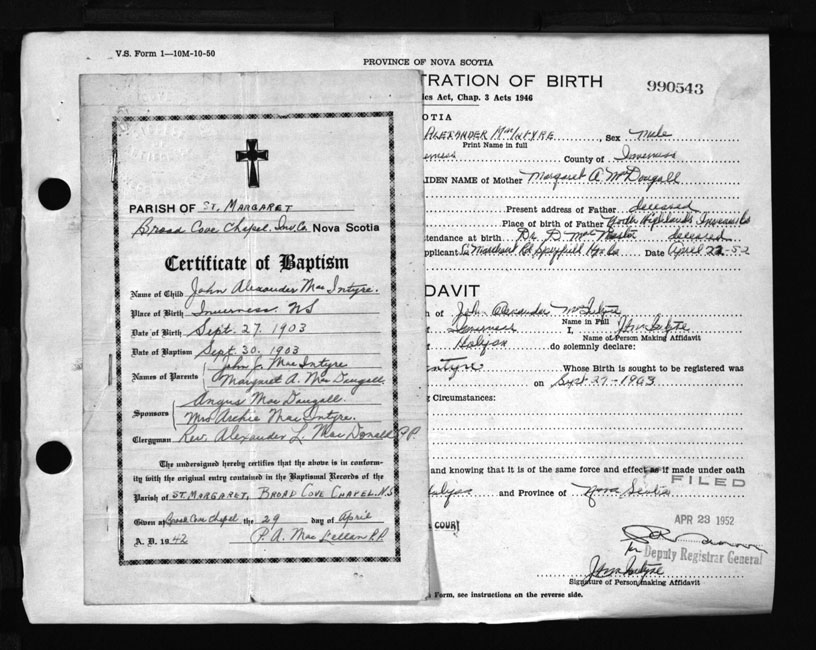 V.S. Form 1—10M-10-50
PROVINCE OF NOVA SCOTIA
TRATION OF BIRTH
990543
ics Act, Chap. 3 Acts 1946
OTIA
ALEXANDER MacINTYRE, Sex Male
Print Name in full
erness County of Inverness
IDEN NAME of Mother Margaret A. McDougall
Present address of Father deceased
Place of birth of Father North Highlands Inverness Co
ttendance at birth Dr. D. Mac Master deceased
pplicant Rd Spryfield Hfx Co Date April 22-52
PARISH OF ST. MARGARET
Broad Cove Chapel. Inv. Co. Nova Scotia
Certificate of Baptism
Name of Child John Alexander MacIntyre.
Place of Birth Inverness. NS
Date of Birth Sept. 27. 1903
Date of Baptism Sept. 30. 1903
Names of Parents John J. MacIntyre
Margaret A. MacDougall
Sponsors Angus MacDougall.
Mrs Archie MacIntyre.
Clergyman Rev. Alexander L. MacDonald P.P.
The undersigned hereby certifies that the above is in conform-
ity with the original entry contained in the Baptismal Records of the
Parish of ST. MARGARET, BROAD COVE CHAPEL. N.S
Given at Broad Cove Chapel the 29 day of April
A. D. 1942 P. A. MacLellan P.P.
DAVIT
n of John Alexander McIntyre
Name in Full
Inverness I, J.A. McIntyre
Name of Person Making Affidavit
Halifax do solemnly declare:
Intyre Whose Birth is sought to be registered was
on Sept 27-1903
g Circumstances:
and knowing that it is of the same force and effect as if made under oath
Halifax and Province of Nova Scotia
FILED
APR 23 1952
COURT
for Deputy Registrar General
Signature of Person making Affidavit
Form, see instructions on the reverse side.